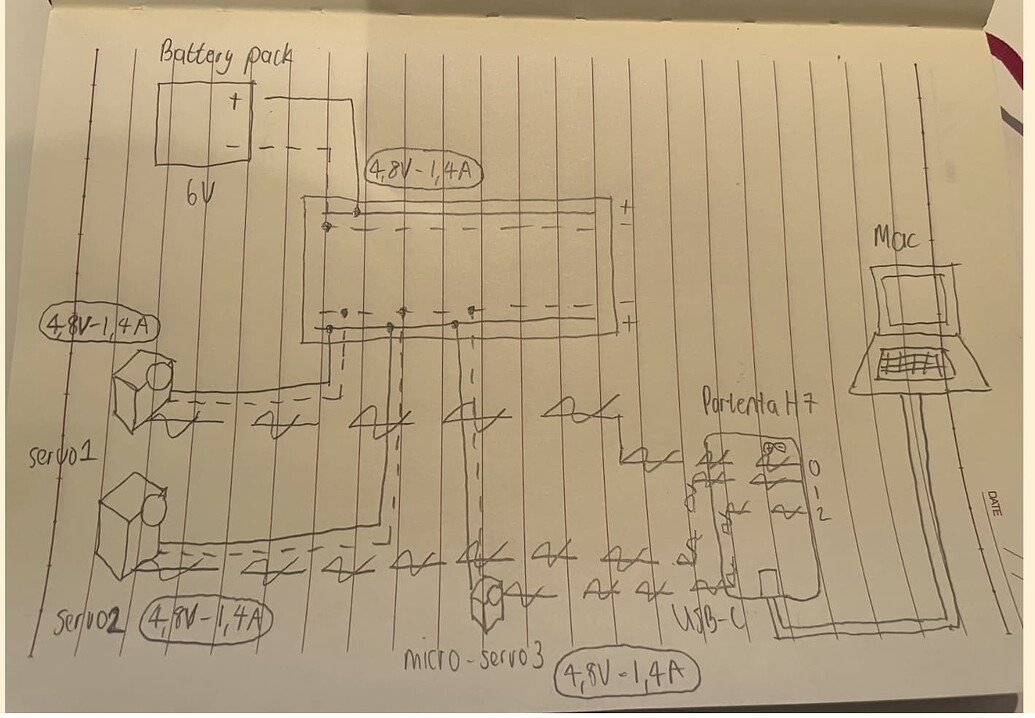 Battery pack
+
-
6V
4,8V-1,4A
+
-
-
+
Mac
4,8V-1,4A
servo1
Portenta H7
0
1
2
servo2
4,8V-1,4A
USB-C
micro-servo3
4,8V-1,4A
DATE